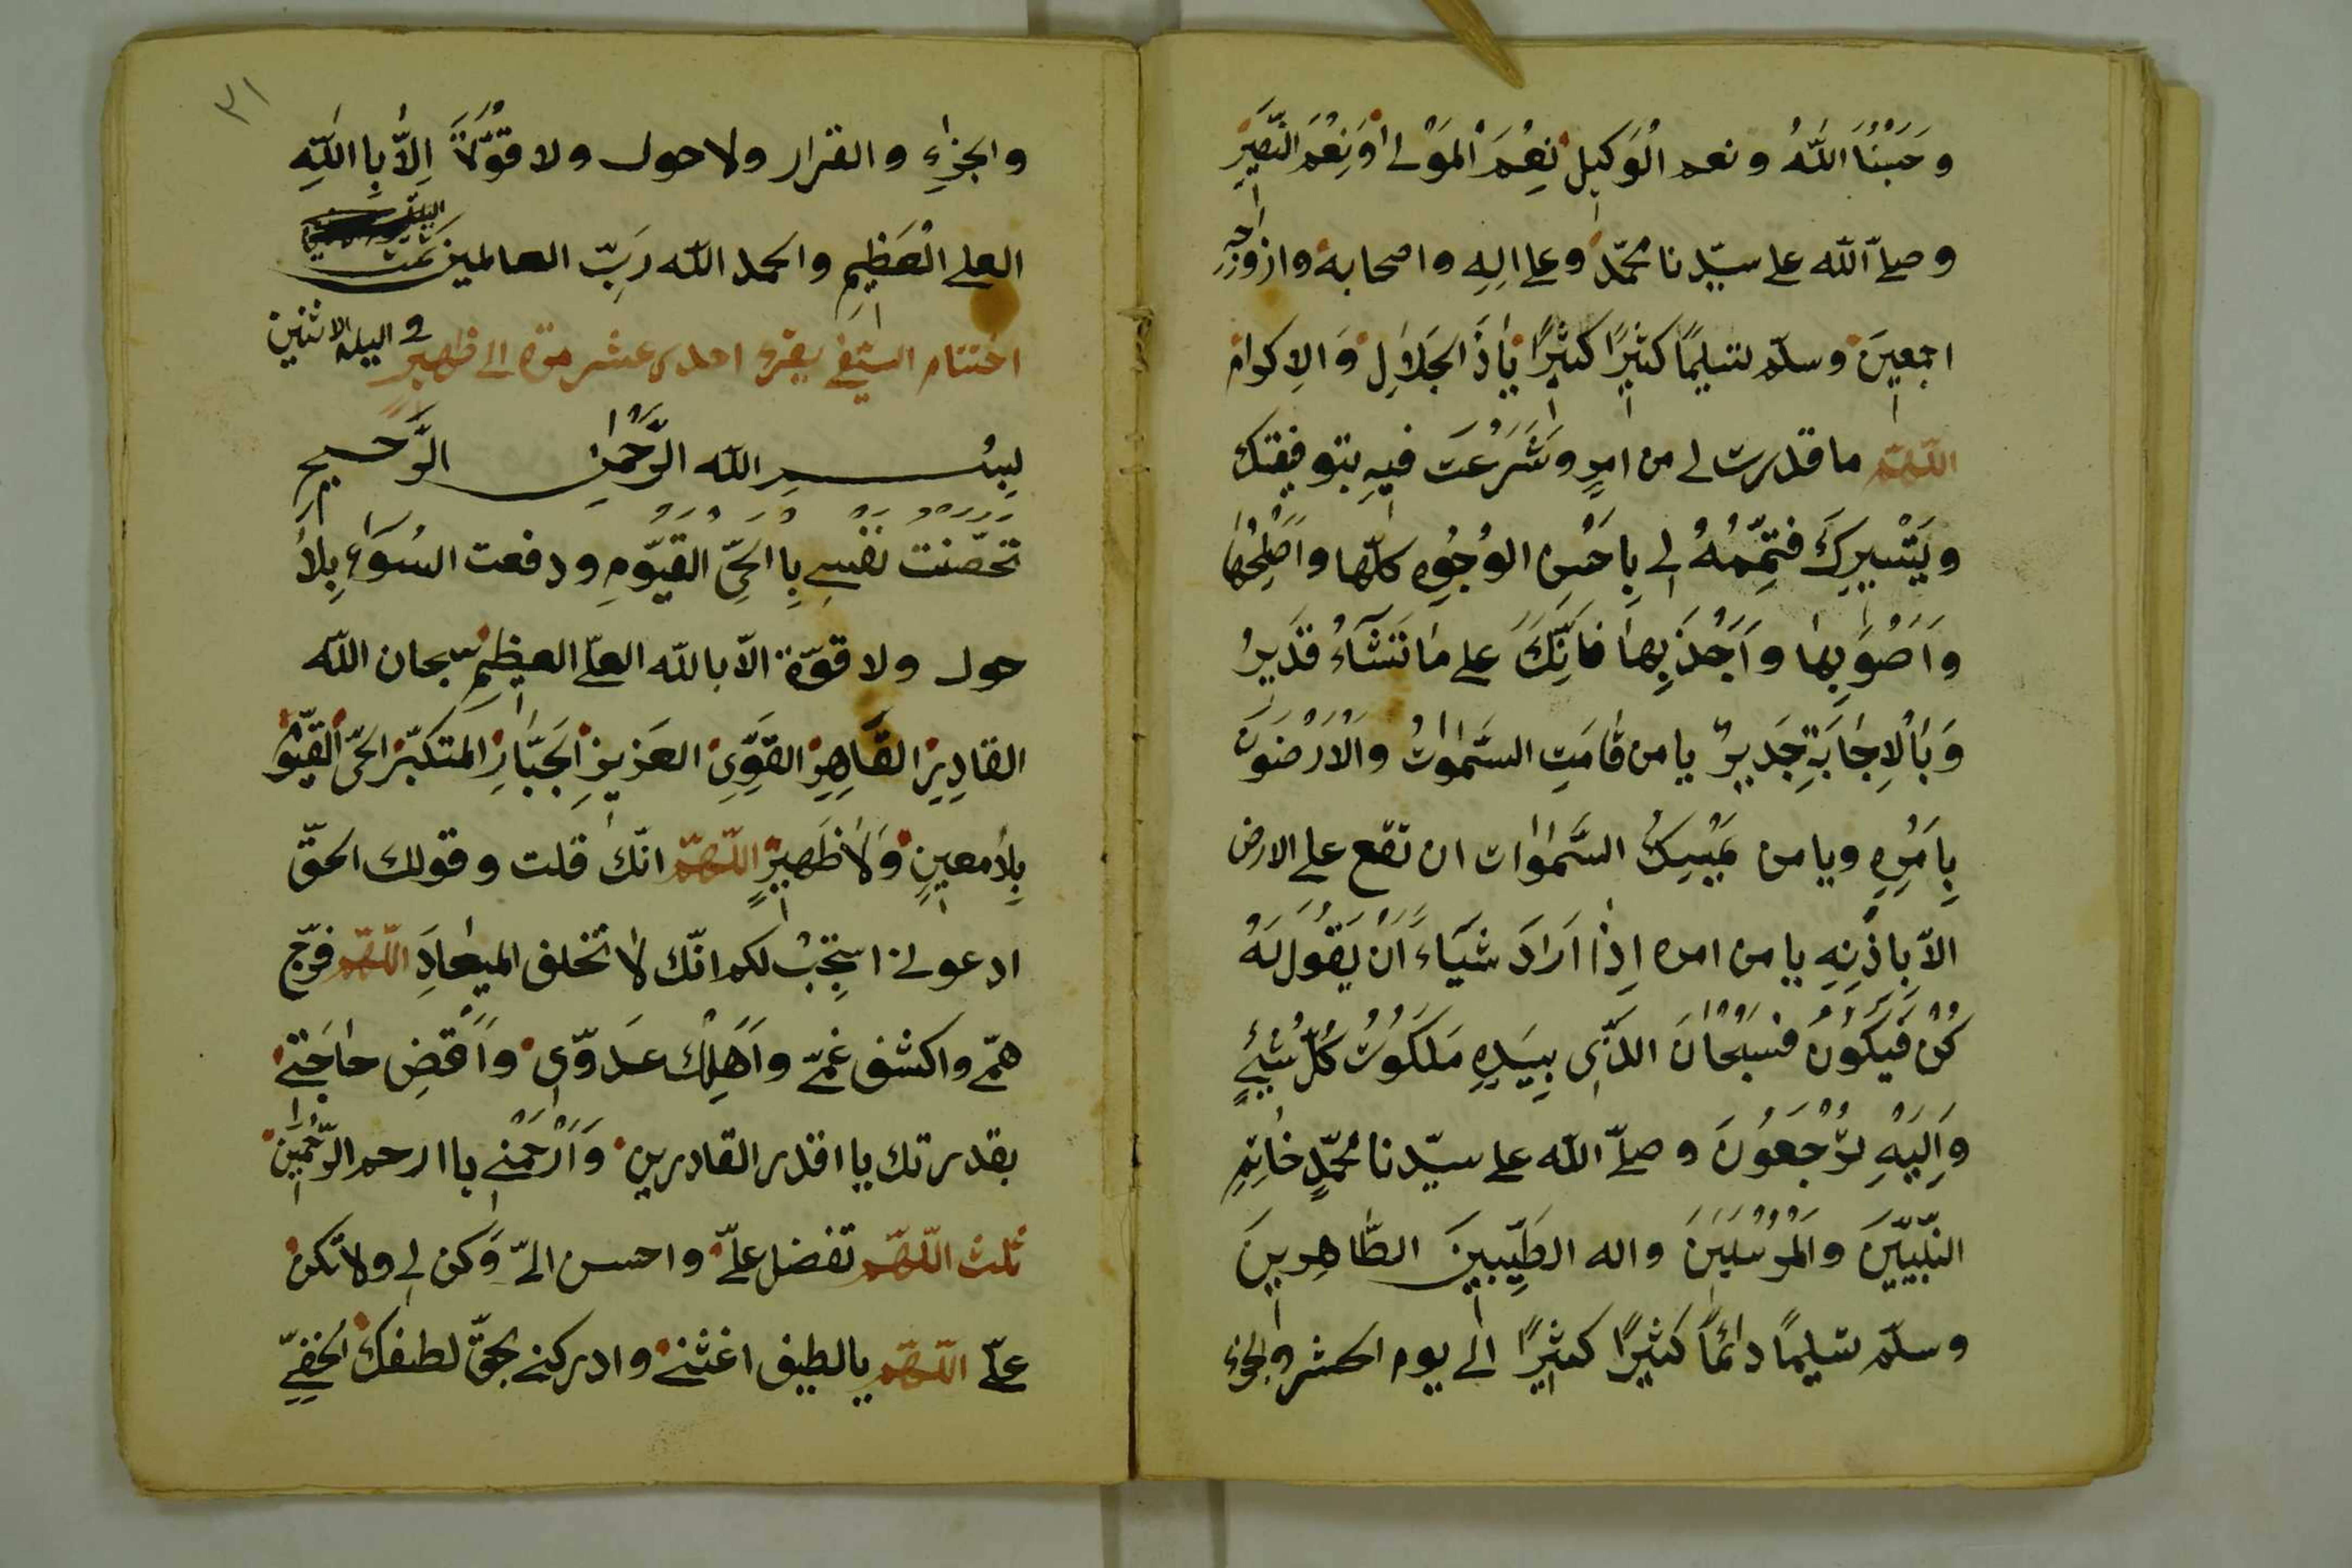 وَحَسْبُنَا اللّٰهُ ونعم الْوَكيل نِعْمَ الْمَوْلى وَنِعْمَ النَّصِير
وصلّى اللّه على سيّدنا محمّد وعلى الِهِ واصحابه وازوجِهِ
اجمعينَ وسلّم تسْلِيمًا كثيرًا كثيرًا يٰاذَا الجَلاٰلِ وَ الاِكرام
اللّهمّ ما قدرت لى من امرٍ وشَرَعْتَ فيهِ بتوفيقك
وبِتَيْسيرِكَ فتمِّمْهُ لى بِاَحْسن الوُجُوهِ كلّها واَصْلَحِها
واَصْوَبِها واَجْذَبِها فَاِنَّكَ على مٰا تَشَآءُ قَديرٌ
وَبْالْاِجٰابَةِ جَديرٌ يا من قٰامَتِ السَّمٰوٰاتُ وَالْاَرَضُونَ
بِاَمْرِهِ ويا من يُمْسِكُ السَّمٰوٰات ان تقع على الارض
الّا بِاِذْنِهِ يا من امره اِذٰا اَرَادَ شَيْاءً اَنْ يَقُولَ لَهُ
كُنْ فَيَكُونُ فَسُبْحٰانَ الَّذى بِيَدِهِ مَلَكُوتُ كُلِّ شَيْءٍ
وَاِلَيْهِ تُرْجَعُونَ وصلّى اللّه على سيّدنا محمّدٍ خٰاتِمِ
النّبيّينَ والْمُرْسَلينَ واله الطَّيِّبينَ الطّٰاهِرينَ
وسلّم تسْليمًا دٰائمًا كثيرًا كثيرًا الى يوم الحشر والجزء
٣١
والجزاءِ والقرار ولا حول ولا قُوَّةَ اِلاّٰ بِا اللّٰهِ
العلى الْعَظيمِ والحمد اللّه رَبّ العالمين تمت
اختتام السيفى يقرء احدى عشر مرّة الى ظهير
و اليله الاثنين
بِسْـــمِ اللّه الرَّحْمٰنِ الرَّحــيم
تحَصّنت نفْسى بِا الحَىّ القيّومِ ودفعت السُوءَ بِلاٰ
حول ولا قوّة الاّ باللّه العلّى العظيمِ سبحان اللّه
القادِرِ القَاهِرِ القَوِّىِ العَزيزِ الْجَبّٰارِ المتكبّر الحىّ القيّو
بِلاٰ معينٍ وَلاٰ ظَهيرٍ اللّهمّ انّك قلت وقولك الحقّ
ادعونى استَجِبْ لكم انّك لاٰ تخلف الميعٰادَ اللّهمّ فرّج
همّى واكشف غمّى واَهْلِكْ عَدوّى واَقْضِ حٰاجَتى
بقدرتك يا اقدر القادرين وَاَرْحَمْنى يا ارحم الرّٰحِمينَ
ثلث اللّهمّ تفضل علىّ واحسن الىّ وَكن لى ولا تَكن
علىّ اللّهمّ يالطيف اغثنى وادركنى بحقّ لطفك الخفىّ